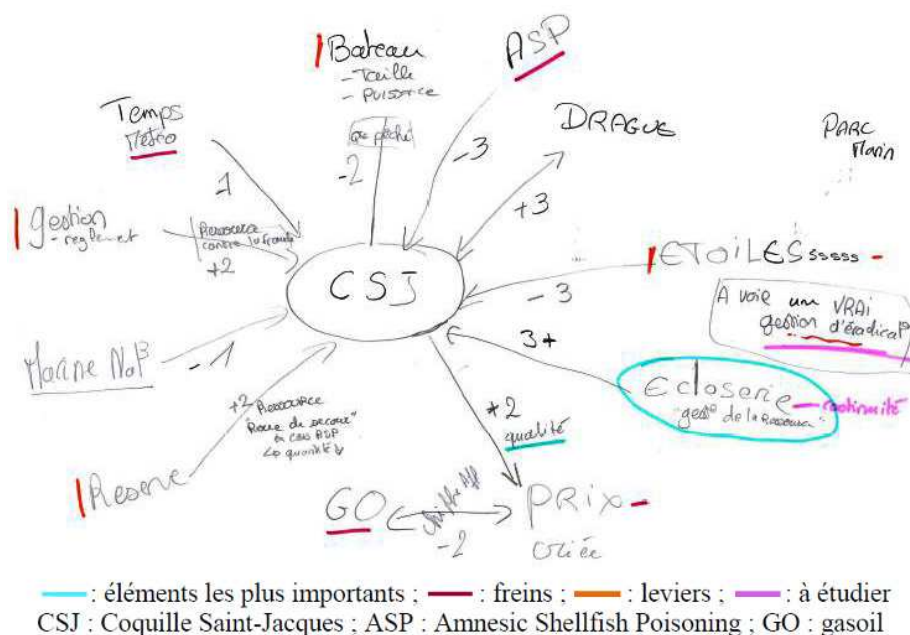 Bateau
- Taille
- Puissance
ASP
Temps
Météo
DRAGUE
PARC
Marin
-2
-3
-1
+3
gestion
- reglemet
Ressource
contre la fraude
+2
CSJ
ETOILESsssss -
- 3
A voir un VRAI
gestion d'éradicat°
Marine Nale
-1
3+
Ecloserie
"gest° de la Ressource"
continuité
+2
Ressource
"Roue de secours"
en cas ASP
↳ quantité
+2
qualité
Reserve
GO
-2
PRIX
criée
: éléments les plus importants ; : freins ; : leviers ; : à étudier
CSJ : Coquille Saint-Jacques ; ASP : Amnesic Shellfish Poisoning ; GO : gasoil